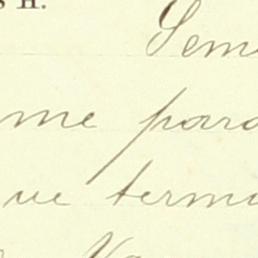 s H.
Sem
me para
ue terma